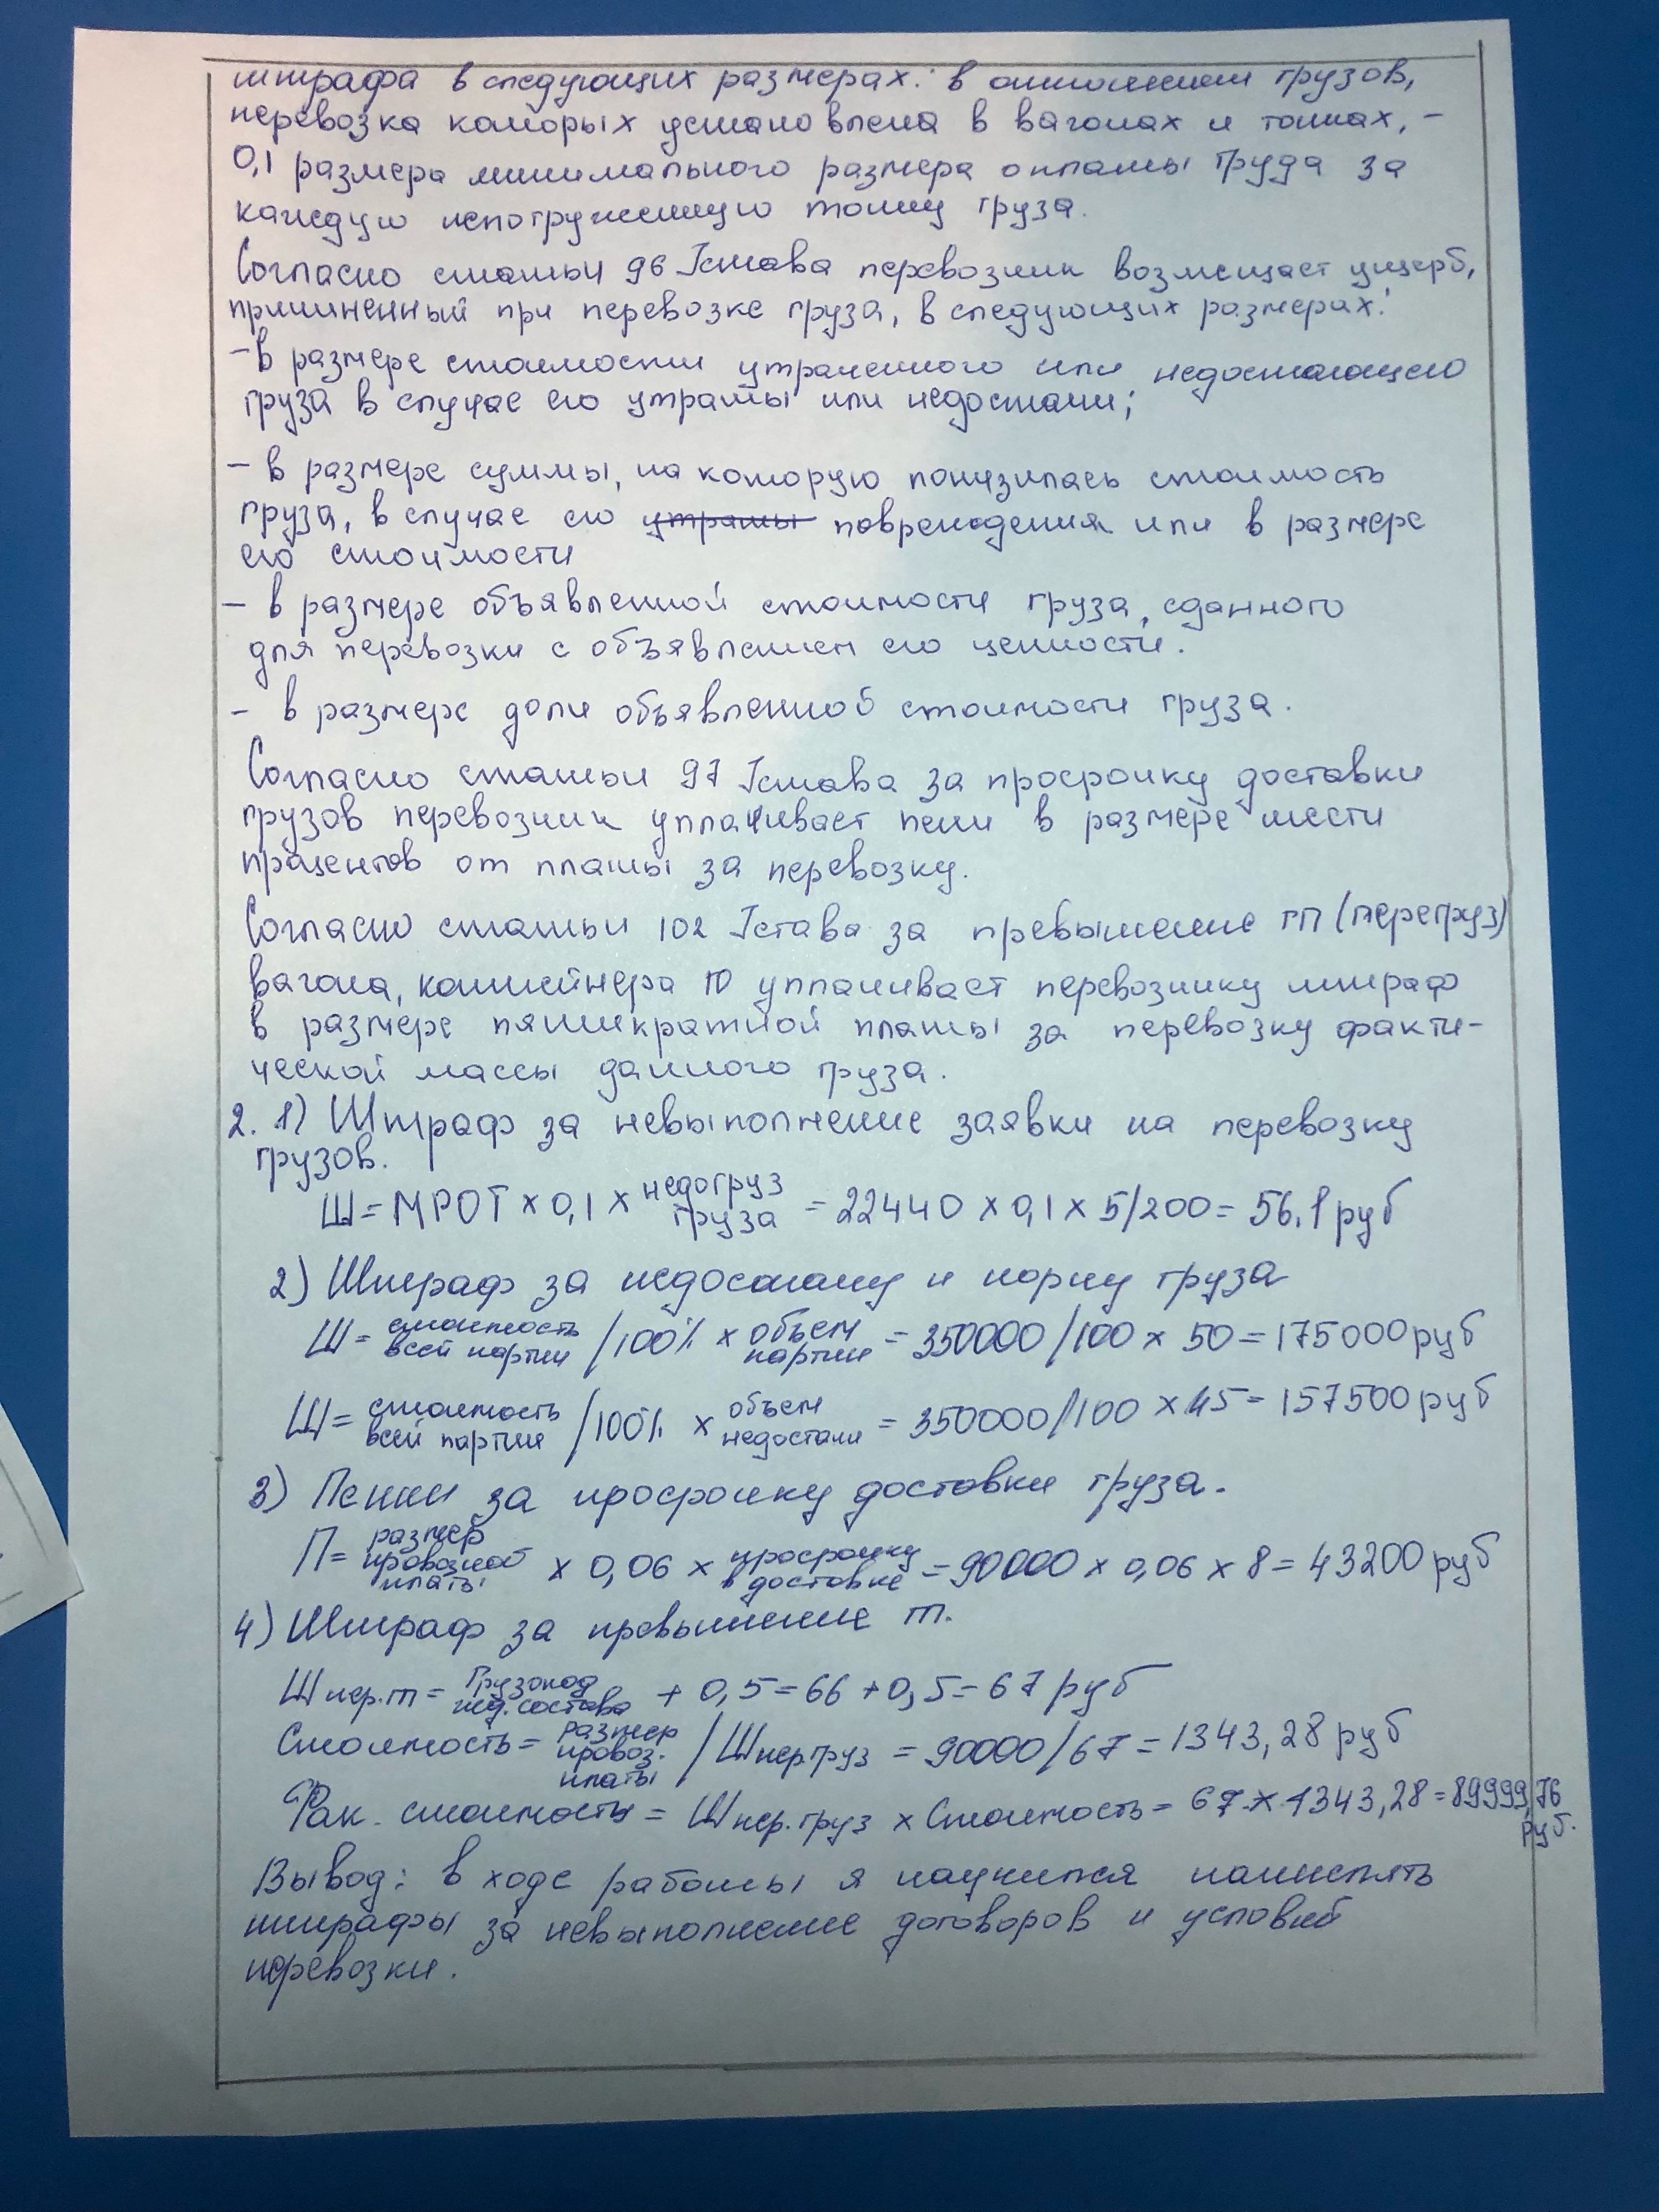 штрафа в следующих размерах: в отношении грузов,
перевозка которых установлена в вагонах и тоннах, –
0,1 размера минимального размера оплаты труда за
каждую непогруженную тонну груза.
Согласно статьи 96 Устава перевозчик возмещает ущерб,
причиненный при перевозке груза, в следующих размерах:
– в размере стоимости утраченного или недостающего
груза в случае его утраты или недостачи;
– в размере суммы, на которую понизилась стоимость
груза, в случае его утраты повреждения или в размере
его стоимости
– в размере объявленной стоимости груза, сданного
для перевозки с объявлением его ценности.
– в размере доли объявленной стоимости груза.
Согласно статьи 97 Устава за просрочку доставки
грузов перевозчик уплачивает пени в размере шести
процентов от платы за перевозку.
Согласно статьи 102 Устава за превышение ГП (перегруз)
вагона, контейнера ГО уплачивает перевозчику штраф
в размере пятикратной платы за перевозку факти-
ческой массы данного груза.
2. 1) Штраф за невыполнение заявки на перевозку
грузов.
Ш = МРОТ × 0,1 × недогруз груза = 22440 × 0,1 × 5/200 = 56,1 руб
2) Штраф за недостачу и порчу груза
Ш = стоимость всей партии / 100% × объем партии = 350000/100 × 50 = 175000 руб
Ш = стоимость всей партии / 100% × объем недостачи = 350000/100 × 45 = 157500 руб
3) Пении за просрочку доставки груза.
П = размер провозной платы × 0,06 × просрочку в доставке = 90000 × 0,06 × 8 = 43200 руб
4) Штраф за превышение m.
Ш пер.m = Грузопод под. состава + 0,5 = 66 + 0,5 = 67 руб
Стоимость = размер провоз. платы / Ш пер.груз = 90000/67 = 1343,28 руб
Фак. стоимость = Ш пер.груз × Стоимость = 67 × 1343,28 = 89999,76 руб.
Вывод: в ходе работы я научился начислять
штрафы за невыполнение договоров и условий
перевозки.